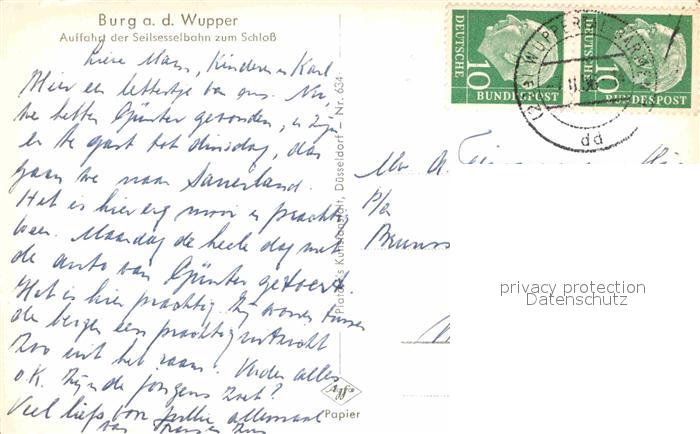 Burg a. d. Wupper
Auffahrt der Seilsesselbahn zum Schloß
Lieve Mam, Kinderen en Karl
Hier een lettertje van ons. Nu,
we hebben Günter gevonden, en zijn
er te gast tot dinsdag, dan
gaan we naar Sauerland.
Het is hier erg mooi en prachtig
weer. Maandag de heele dag met
de auto van Günter getoerd.
Het is hier prachtig. Zij wonen tussen
de bergen een prachtig uitzicht
zoo uit het raam. Verder alles
o.K. Zijn de jongens zoet?
Veel liefs von jullie allemaal
van
Platz Kunstanstalt, Düsseldorf – Nr. 634
Agfa
Papier
DEUTSCHE
BUNDESPOST
10
DEUTSCHE
BUNDESPOST
10
WUPPERTAL-BARMEN
dd
p/a
Brunss
privacy protection
Datenschutz